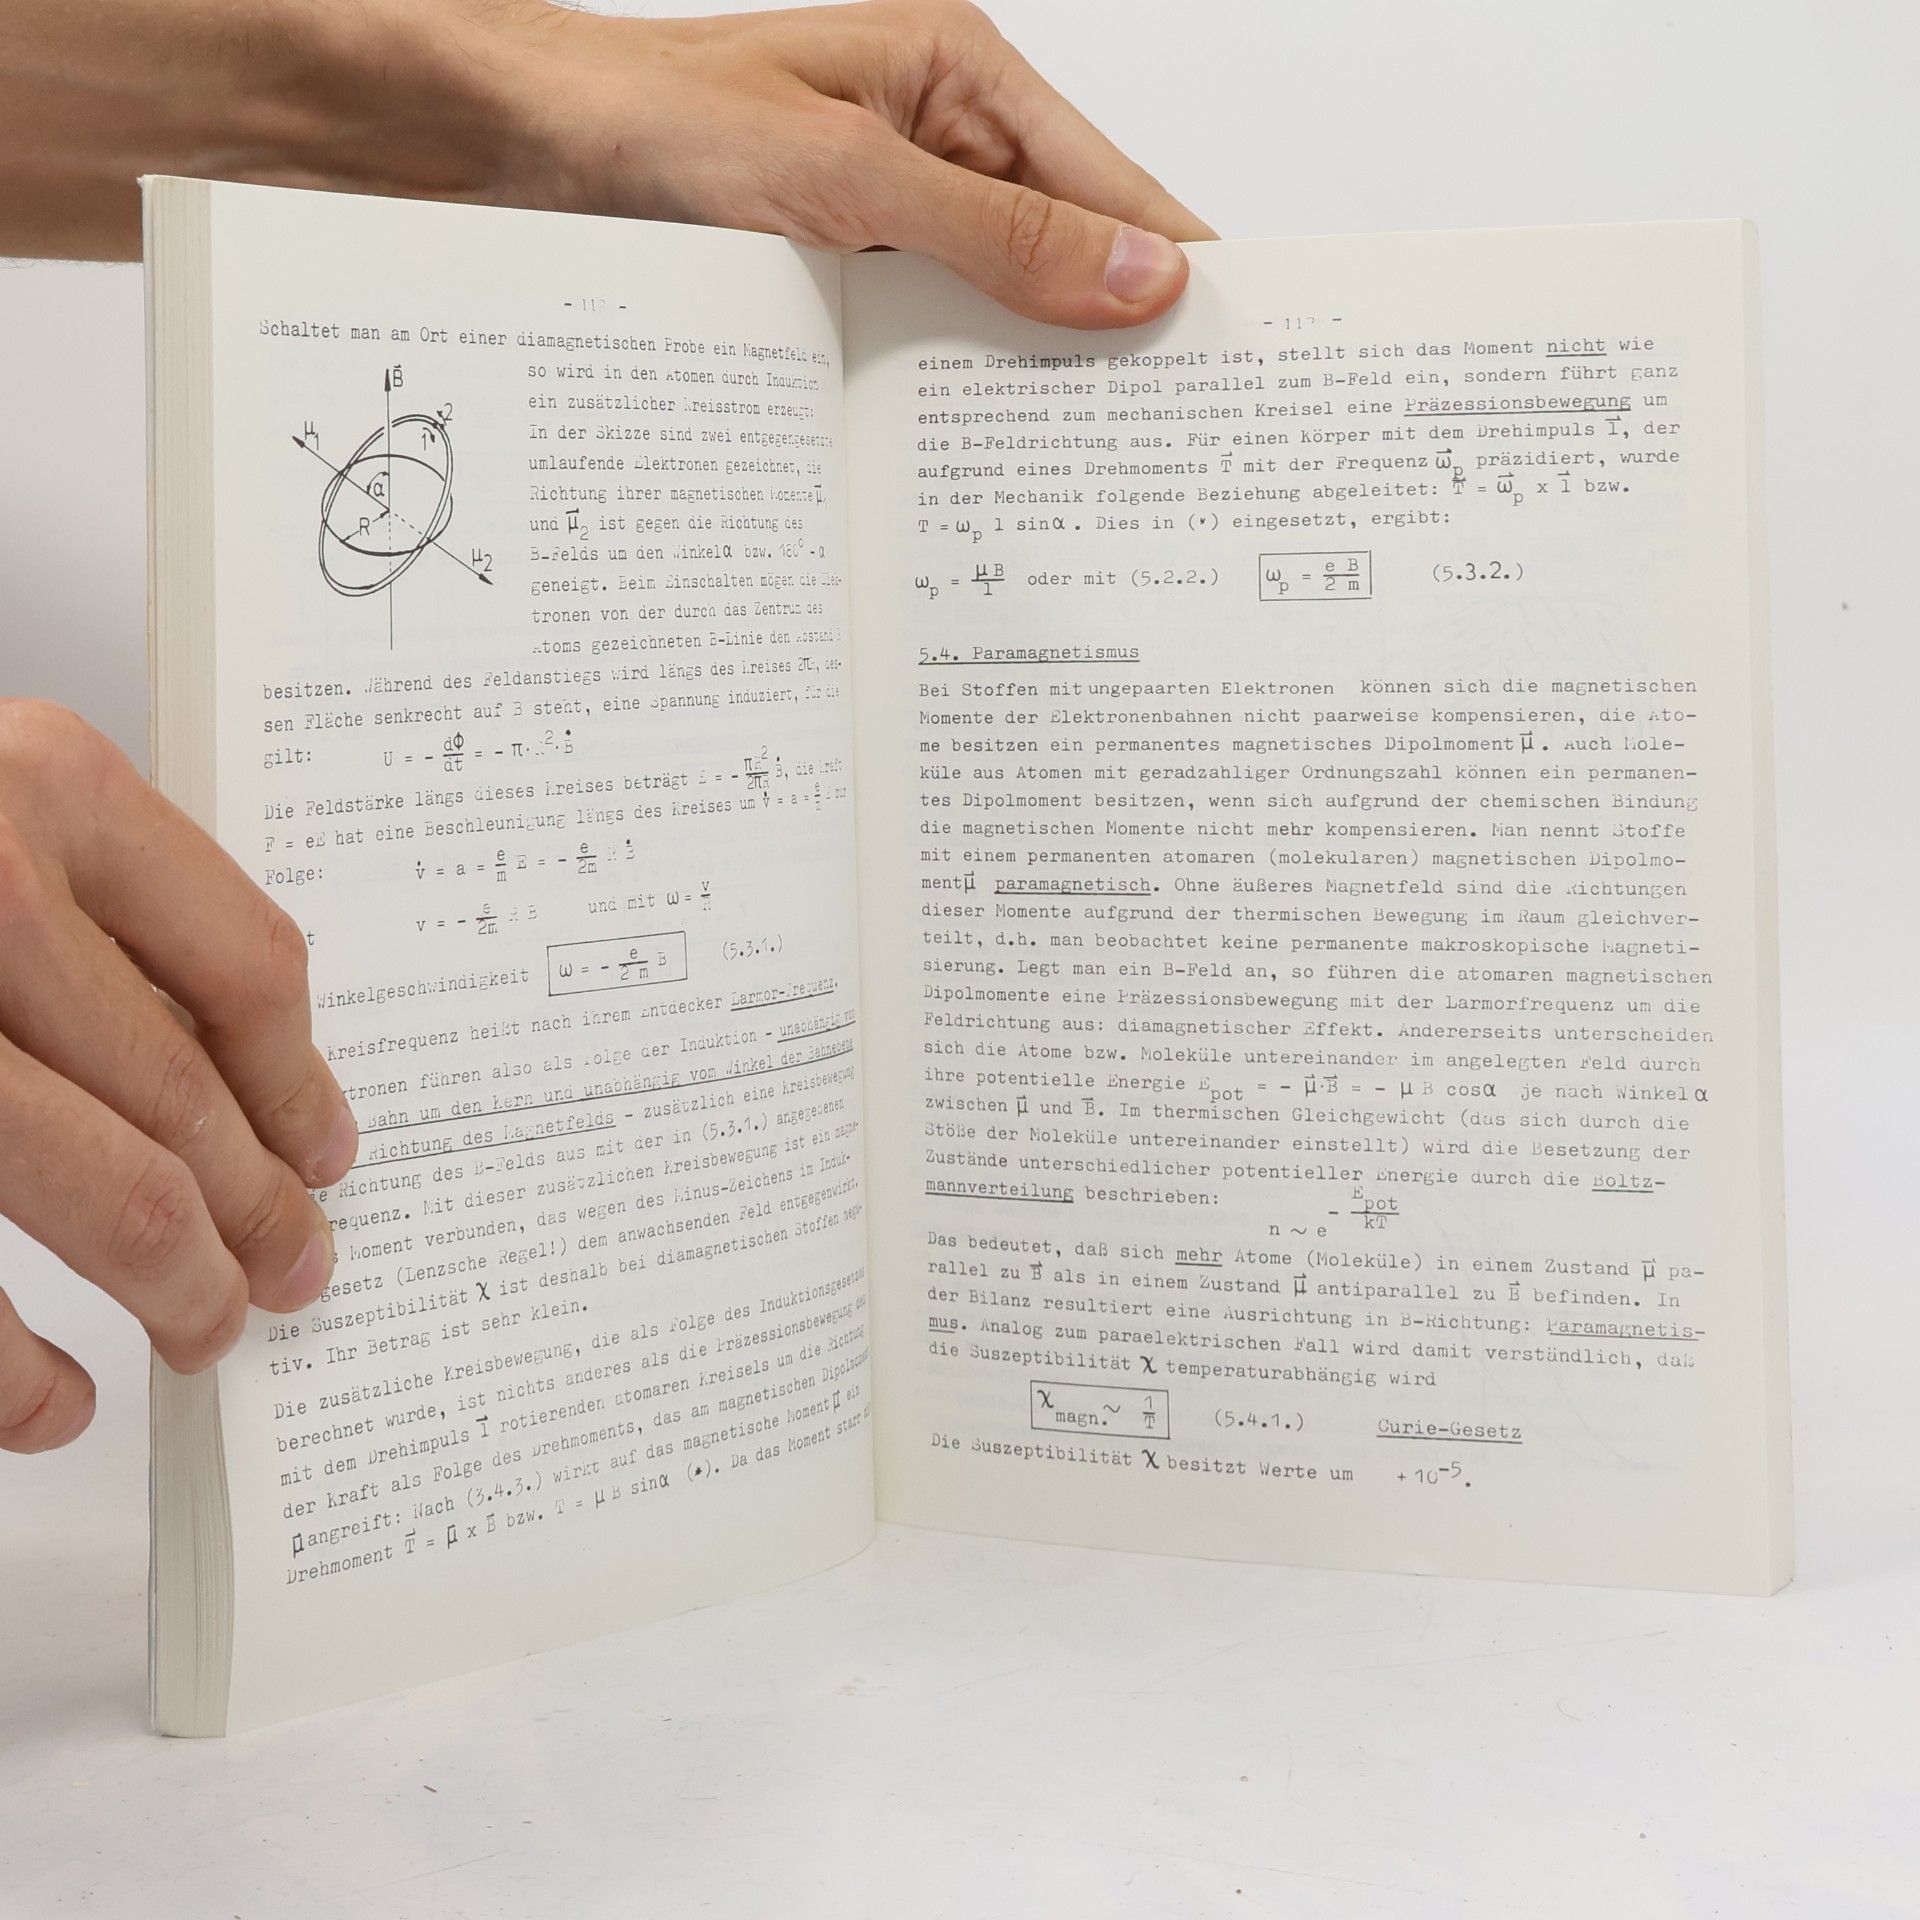 Schaltet man am Ort einer diamagnetischen Probe ein Magnetfeld ein,
so wird in den Atomen durch Induktion
ein zusätzlicher Kreisstrom erzeugt:
In der Skizze sind zwei entgegengesetzt
umlaufende Elektronen gezeichnet, die
Richtung ihrer magnetischen Momente μ⃗₁
und μ⃗₂ ist gegen die Richtung des
B-Felds um den Winkel α bzw. 180° - α
geneigt. Beim Einschalten mögen die Elek-
tronen von der durch das Zentrum des
Atoms gezeichneten B-Linie den Abstand R
B⃗
μ₁
2
1⃗
α
R
μ₂
besitzen. Während des Feldanstiegs wird längs des Kreises 2πR, des-
sen Fläche senkrecht auf B steht, eine Spannung induziert, für die
gilt: U = - dΦ/dt = - π·R²·Ḃ
Die Feldstärke längs dieses Kreises beträgt E = - πR²/2πR Ḃ, die Kraft
F = eE hat eine Beschleunigung längs des Kreises um v̇ = a = zur
Folge: v̇ = a = e/m E = - e/2m R Ḃ
t v = - e/2m R B und mit ω = v/R
Winkelgeschwindigkeit ω = - e/2 m B (5.3.1.)
Kreisfrequenz heißt nach ihrem Entdecker Larmor-Frequenz.
ktronen führen also als Folge der Induktion - unabhängig von
Bahn um den Kern und unabhängig vom Winkel der Bahnebene
Richtung des Magnetfelds - zusätzlich eine Kreisbewegung
ie Richtung des B-Felds aus mit der in (5.3.1.) angegebenen
requenz. Mit dieser zusätzlichen Kreisbewegung ist ein magne-
s Moment verbunden, das wegen des Minus-Zeichens im Induk-
gesetz (Lenzsche Regel!) dem anwachsenden Feld entgegenwirkt.
Die Suszeptibilität χ ist deshalb bei diamagnetischen Stoffen nega-
tiv. Ihr Betrag ist sehr klein.
Die zusätzliche Kreisbewegung, die als Folge des Induktionsgesetzes
berechnet wurde, ist nichts anderes als die Präzessionsbewegung des
mit dem Drehimpuls l⃗ rotierenden atomaren Kreisels um die Richtung
der Kraft als Folge des Drehmoments, das am magnetischen Dipolmoment
μ⃗ angreift: Nach (3.4.3.) wirkt auf das magnetische Moment μ⃗ ein
Drehmoment T⃗ = μ⃗ x B⃗ bzw. T = μ B sinα (*). Da das Moment starr
einem Drehimpuls gekoppelt ist, stellt sich das Moment nicht wie
ein elektrischer Dipol parallel zum B-Feld ein, sondern führt ganz
entsprechend zum mechanischen Kreisel eine Präzessionsbewegung um
die B-Feldrichtung aus. Für einen Körper mit dem Drehimpuls l⃗, der
aufgrund eines Drehmoments T⃗ mit der Frequenz ω⃗p präzidiert, wurde
in der Mechanik folgende Beziehung abgeleitet: T⃗ = ω⃗p x l⃗ bzw.
T = ωp l sinα . Dies in (*) eingesetzt, ergibt:
ωp = μ B/l oder mit (5.2.2.) ωp = e B/2 m (5.3.2.)
5.4. Paramagnetismus
Bei Stoffen mit ungepaarten Elektronen können sich die magnetischen
Momente der Elektronenbahnen nicht paarweise kompensieren, die Ato-
me besitzen ein permanentes magnetisches Dipolmoment μ⃗ . Auch Mole-
küle aus Atomen mit geradzahliger Ordnungszahl können ein permanen-
tes Dipolmoment besitzen, wenn sich aufgrund der chemischen Bindung
die magnetischen Momente nicht mehr kompensieren. Man nennt Stoffe
mit einem permanenten atomaren (molekularen) magnetischen Dipolmo-
ment μ⃗ paramagnetisch. Ohne äußeres Magnetfeld sind die Richtungen
dieser Momente aufgrund der thermischen Bewegung im Raum gleichver-
teilt, d.h. man beobachtet keine permanente makroskopische Magneti-
sierung. Legt man ein B-Feld an, so führen die atomaren magnetischen
Dipolmomente eine Präzessionsbewegung mit der Larmorfrequenz um die
Feldrichtung aus: diamagnetischer Effekt. Andererseits unterscheiden
sich die Atome bzw. Moleküle untereinander im angelegten Feld durch
ihre potentielle Energie Epot = - μ⃗·B⃗ = - μ B cosα je nach Winkel α
zwischen μ⃗ und B⃗. Im thermischen Gleichgewicht (das sich durch die
Stöße der Moleküle untereinander einstellt) wird die Besetzung der
Zustände unterschiedlicher potentieller Energie durch die Boltz-
mannverteilung beschrieben:
n ~ e^(- Epot/kT)
Das bedeutet, daß sich mehr Atome (Moleküle) in einem Zustand μ⃗ pa-
rallel zu B⃗ als in einem Zustand μ⃗ antiparallel zu B⃗ befinden. In
der Bilanz resultiert eine Ausrichtung in B-Richtung: Paramagnetis-
mus. Analog zum paraelektrischen Fall wird damit verständlich, daß
die Suszeptibilität χ temperaturabhängig wird
χmagn. ~ 1/T (5.4.1.) Curie-Gesetz
Die Suszeptibilität χ besitzt Werte um + 10⁻⁵.